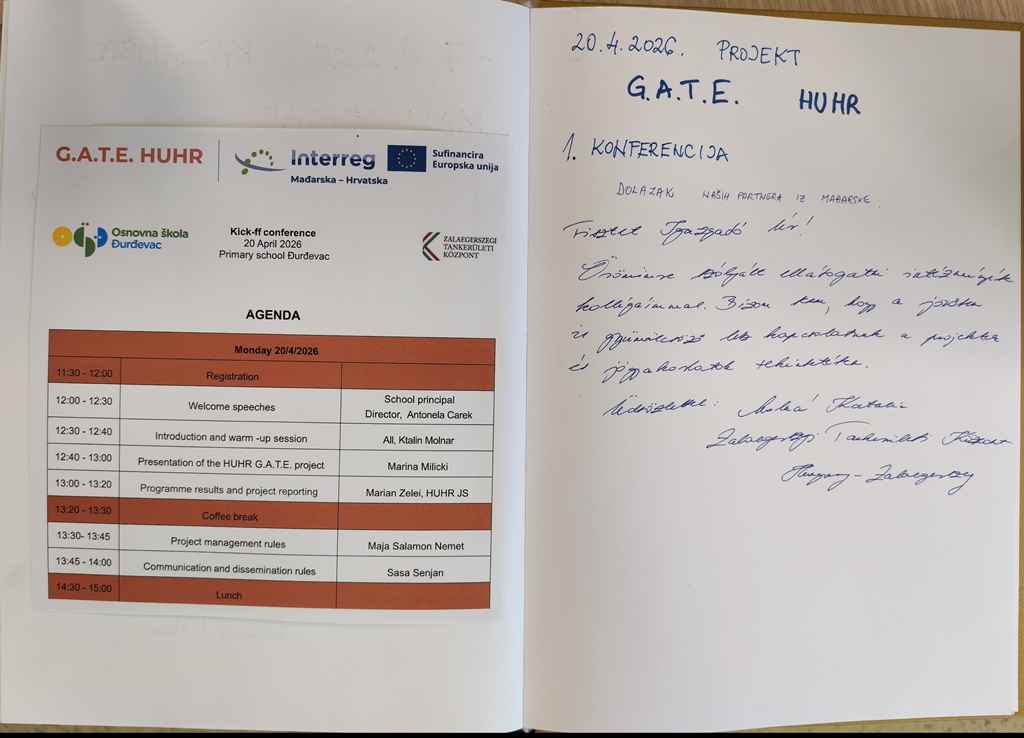 G.A.T.E. HUHR
Interreg
Mađarska – Hrvatska
Sufinancira
Europska unija
Osnovna škola
Đurđevac
Kick-ff conference
20 April 2026
Primary school Đurđevac
ZALAEGERSZEGI
TANKERÜLETI
KÖZPONT
AGENDA
Monday 20/4/2026
11:30 - 12:00 Registration
12:00 - 12:30 Welcome speeches School principal
Director, Antonela Carek
12:30 - 12:40 Introduction and warm -up session All, Ktalin Molnar
12:40 - 13:00 Presentation of the HUHR G.A.T.E. project Marina Milicki
13:00 - 13:20 Programme results and project reporting Marian Zelei, HUHR JS
13:20 - 13:30 Coffee break
13:30- 13:45 Project management rules Maja Salamon Nemet
13:45 - 14:00 Communication and dissemination rules Sasa Senjan
14:30 - 15:00 Lunch
20.4.2026. PROJEKT
G.A.T.E. HUHR
1. KONFERENCIJA
DOLAZAK NAŠIH PARTNERA IZ MAĐARSKE.
Tisztelt Igazgató Úr!
Örömünkre szolgált ellátogatni
kollégáimmal. Bízom benne, hogy a jövőben
is gyümölcsöző lesz kapcsolatunk a projektek
és jógyakorlatok tekintetében.
Üdvözlettel: Katalin
Zalaegerszegi Tankerületi Központ
Hungary - Zalaegerszeg